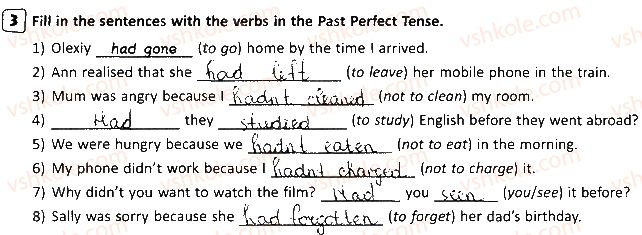 3 Fill in the sentences with the verbs in the Past Perfect Tense.
1) Olexiy had gone (to go) home by the time I arrived.
2) Ann realised that she had left (to leave) her mobile phone in the train.
3) Mum was angry because I hadnt cleaned (not to clean) my room.
4) Had they studied (to study) English before they went abroad?
5) We were hungry because we hadnt eaten (not to eat) in the morning.
6) My phone didn't work because I hadnt charged (not to charge) it.
7) Why didn't you want to watch the film? Had you seen (you/see) it before?
8) Sally was sorry because she had forgotten (to forget) her dad's birthday.